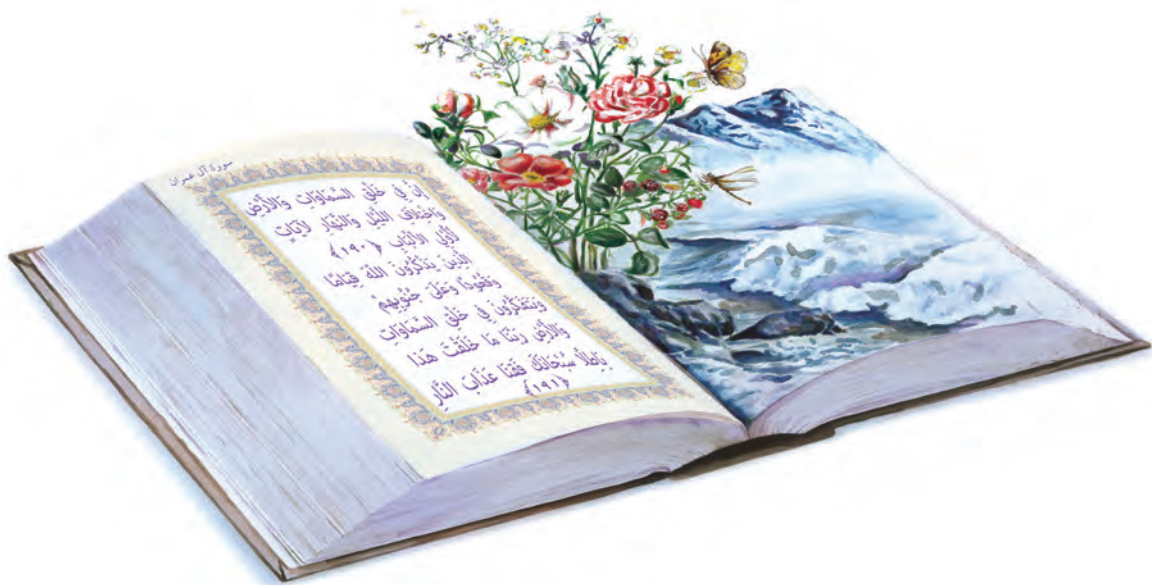 سورة آل عمران
إِنَّ فِي خَلْقِ السَّمَاوَاتِ وَالْأَرْضِ
وَاخْتِلَافِ اللَّيْلِ وَالنَّهَارِ لَآيَاتٍ
لِأُولِي الْأَلْبَابِ ﴿١٩٠﴾
الَّذِينَ يَذْكُرُونَ اللَّهَ قِيَامًا
وَقُعُودًا وَعَلَىٰ جُنُوبِهِمْ
وَيَتَفَكَّرُونَ فِي خَلْقِ السَّمَاوَاتِ
وَالْأَرْضِ رَبَّنَا مَا خَلَقْتَ هَٰذَا
بَاطِلًا سُبْحَانَكَ فَقِنَا عَذَابَ النَّارِ
﴿١٩١﴾